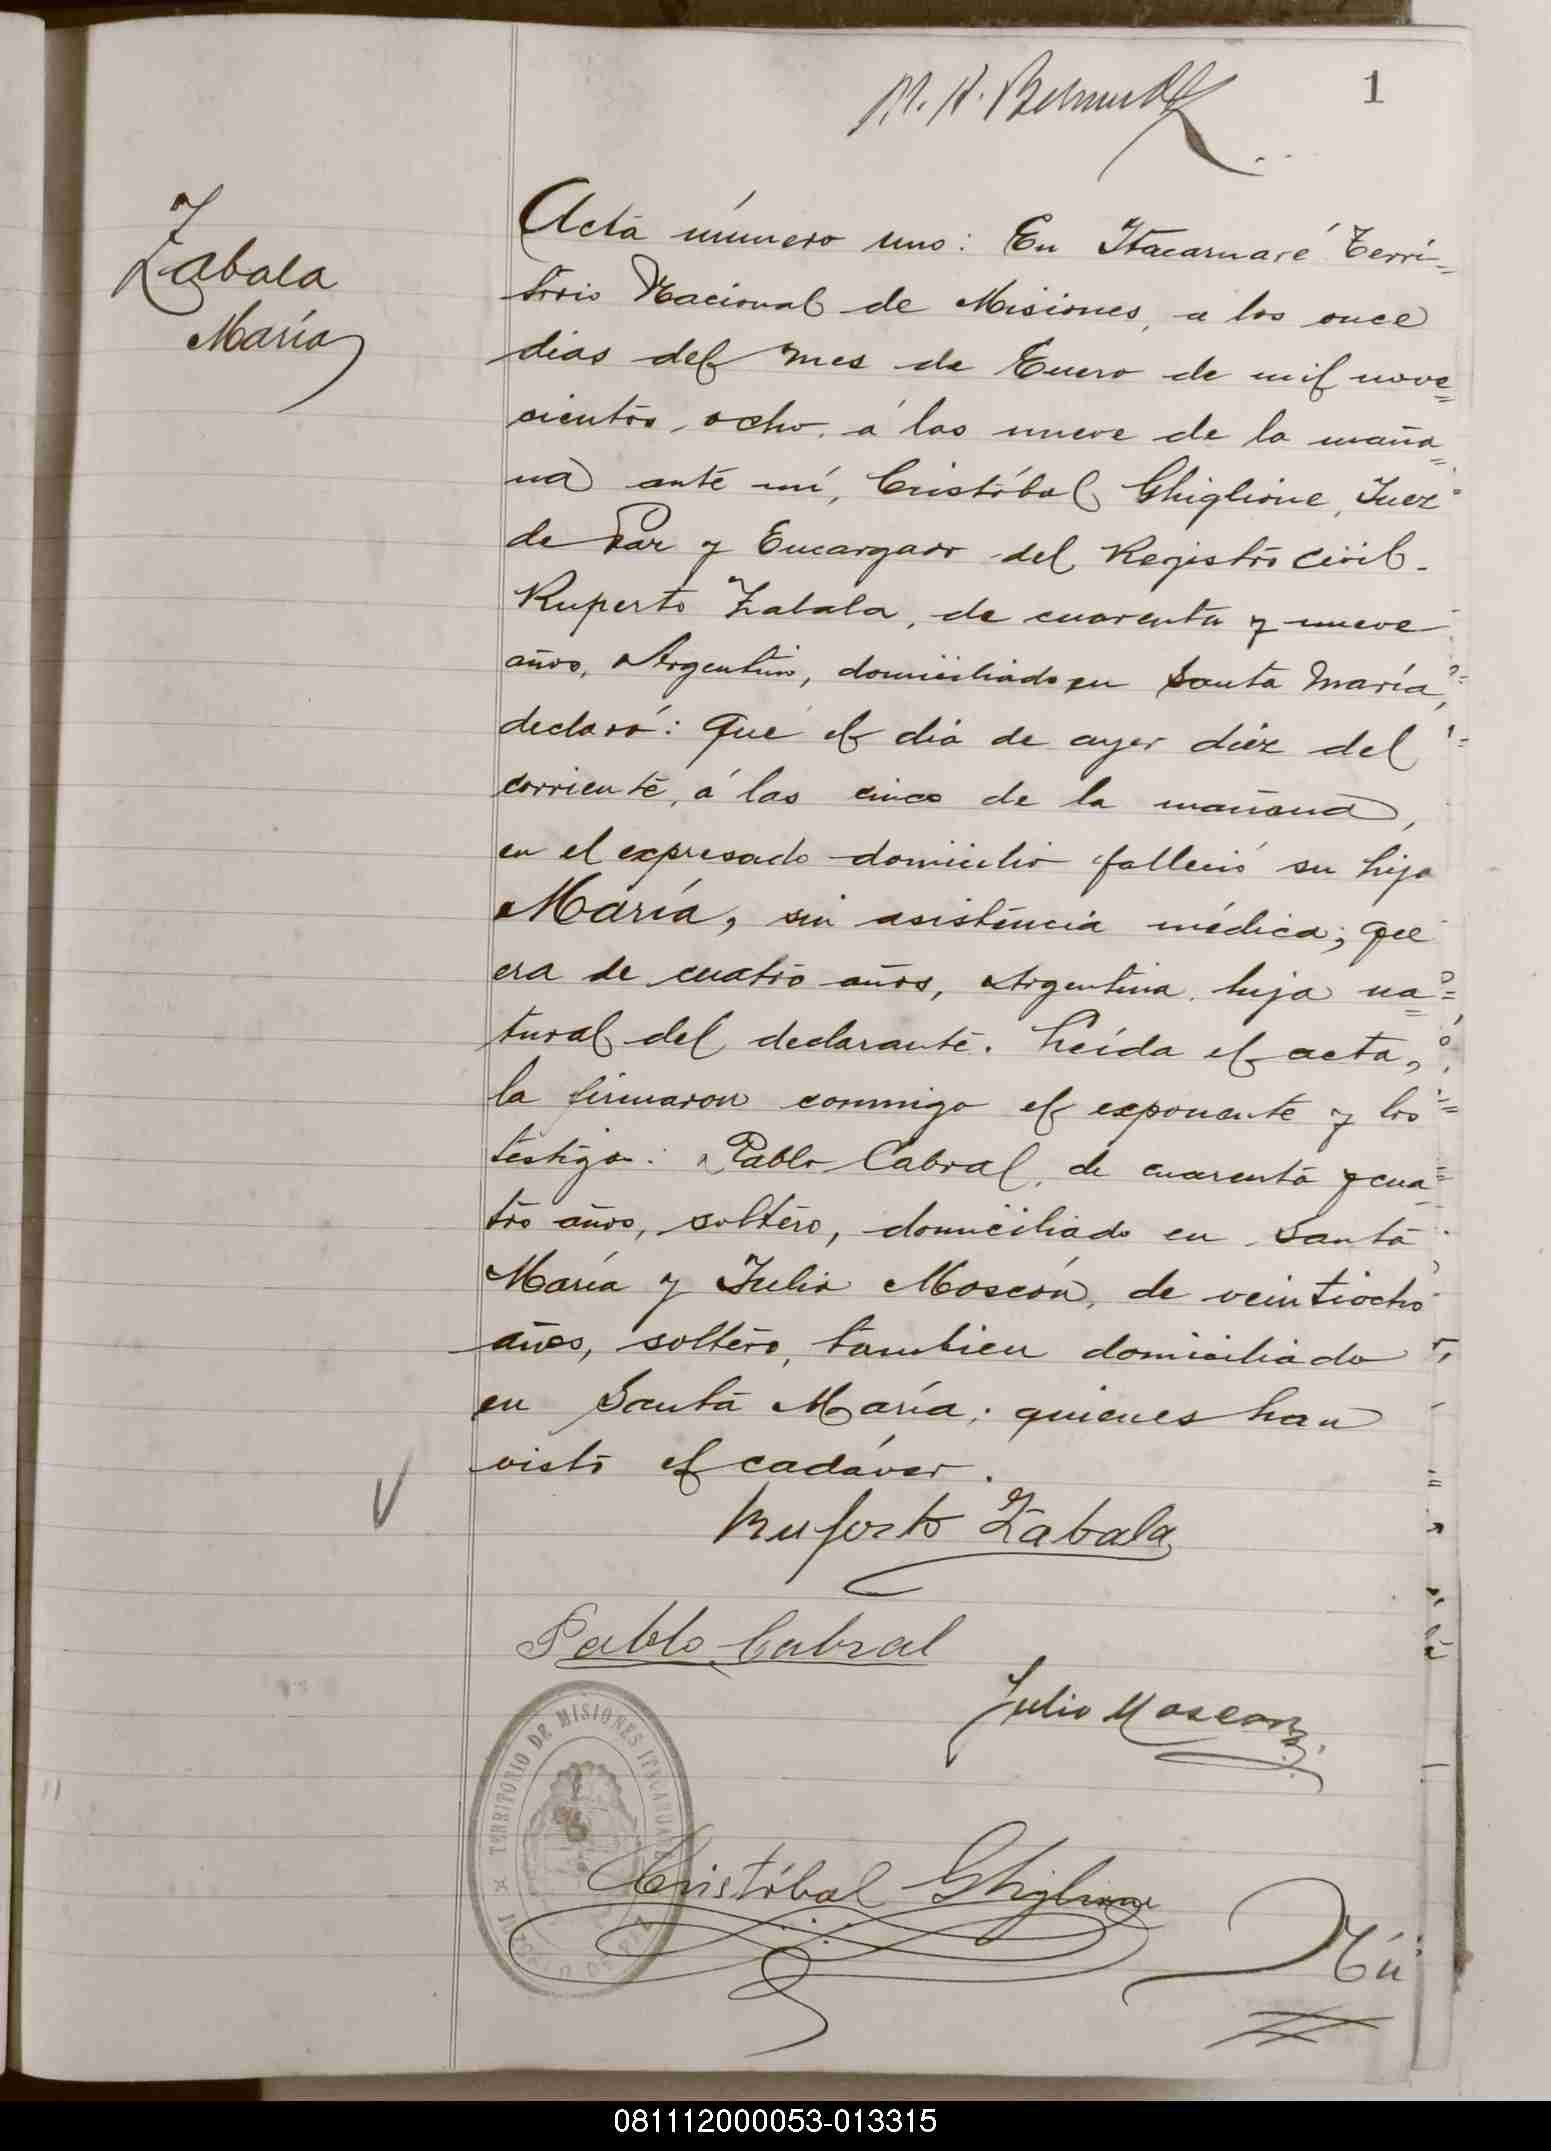 M. H. Bermudez
1
Zabala
María
Acta número uno: En Itacaruaré Terri=
torio Nacional de Misiones, a los once
dias del mes de Enero de mil nove=
cientos ocho, á las nueve de la maña=
na ante mí, Cristóbal Ghiglione, Juez
de Paz y Encargado del Registro Civil.
Ruperto Zabala, de cuarenta y nueve
años, Argentino, domiciliado en Santa María,
declaró: Que el dia de ayer diez del
corriente, á las cinco de la mañana,
en el expresado domicilio falleció su hija
María, sin asistencia médica; que
era de cuatro años, Argentina, hija na=
tural del declarante. Leída el acta,
la firmaron conmigo el exponente y los
testigos: Pablo Cabral, de cuarenta y cua=
tro años, soltero, domiciliado en Santa
María y Julio Moscón, de veintiocho
años, soltero, tambien domiciliado
en Santa María; quienes han
visto el cadáver.
Ruperto Zabala
Pablo Cabral
Julio Moscon
TERRITORIO DE MISIONES ITACARUARÉ
Cristóbal Ghiglione
081112000053-013315